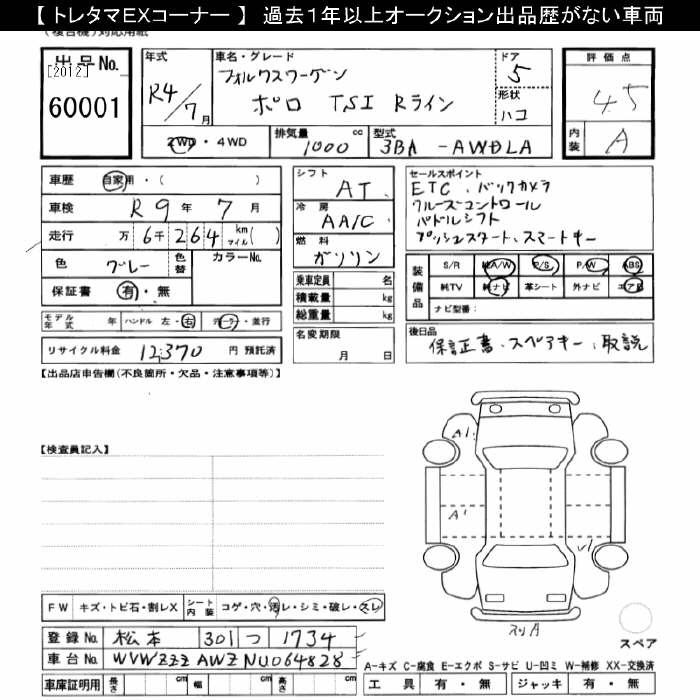 【 トレタマEXコーナー 】 過去1年以上オークション出品歴がない車両
(複合機)対応用紙
出品No.
[2012]
60001
年式
R4/7月
車名・グレード
フォルクスワーゲン
ポロ TSI Rライン
ドア
5
形状
ハコ
評価点
4.5
内装
A
2WD・4WD
排気量 cc
1000
型式
3BA-AWDLA
車歴 自家用・( )
車検 R9年 7月
走行 万 6千 264 km マイル( )
色 グレー 色替 カラーNo.
保証書 有・無
モデル年式 年 ハンドル 左・右 ディーラー・並行
リサイクル料金 12,370 円 預託済
シフト
AT
冷房
AA/C
燃料
ガソリン
乗車定員 名
積載量 kg
総重量 kg
名変期限
月 日
セールスポイント
ETC、バックカメラ
クルーズコントロール
パドルシフト
プッシュスタート、スマートキー
装備品
S/R 純A/W P/S P/W ABS
純TV 純ナビ 革シート 外ナビ エアB
ナビ型番:
後日品
保証書、スペアキー、取説
【出品店申告欄(不良箇所・欠品・注意事項等)】
【検査員記入】
A1
A1
U1
スリA
スペア
FW キズ・トビ石・割レX シート内装 コゲ・穴・汚レ・シミ・破レ・スレ
登録No. 松本 301 つ 1734
車台No. WVWZZZAWZNU064828
車庫証明用 長さ cm 幅 cm 高さ cm
A-キズ C-腐食 E-エクボ S-サビ U-凹ミ W-補修 XX-交換済
工具 有・無 ジャッキ 有・無